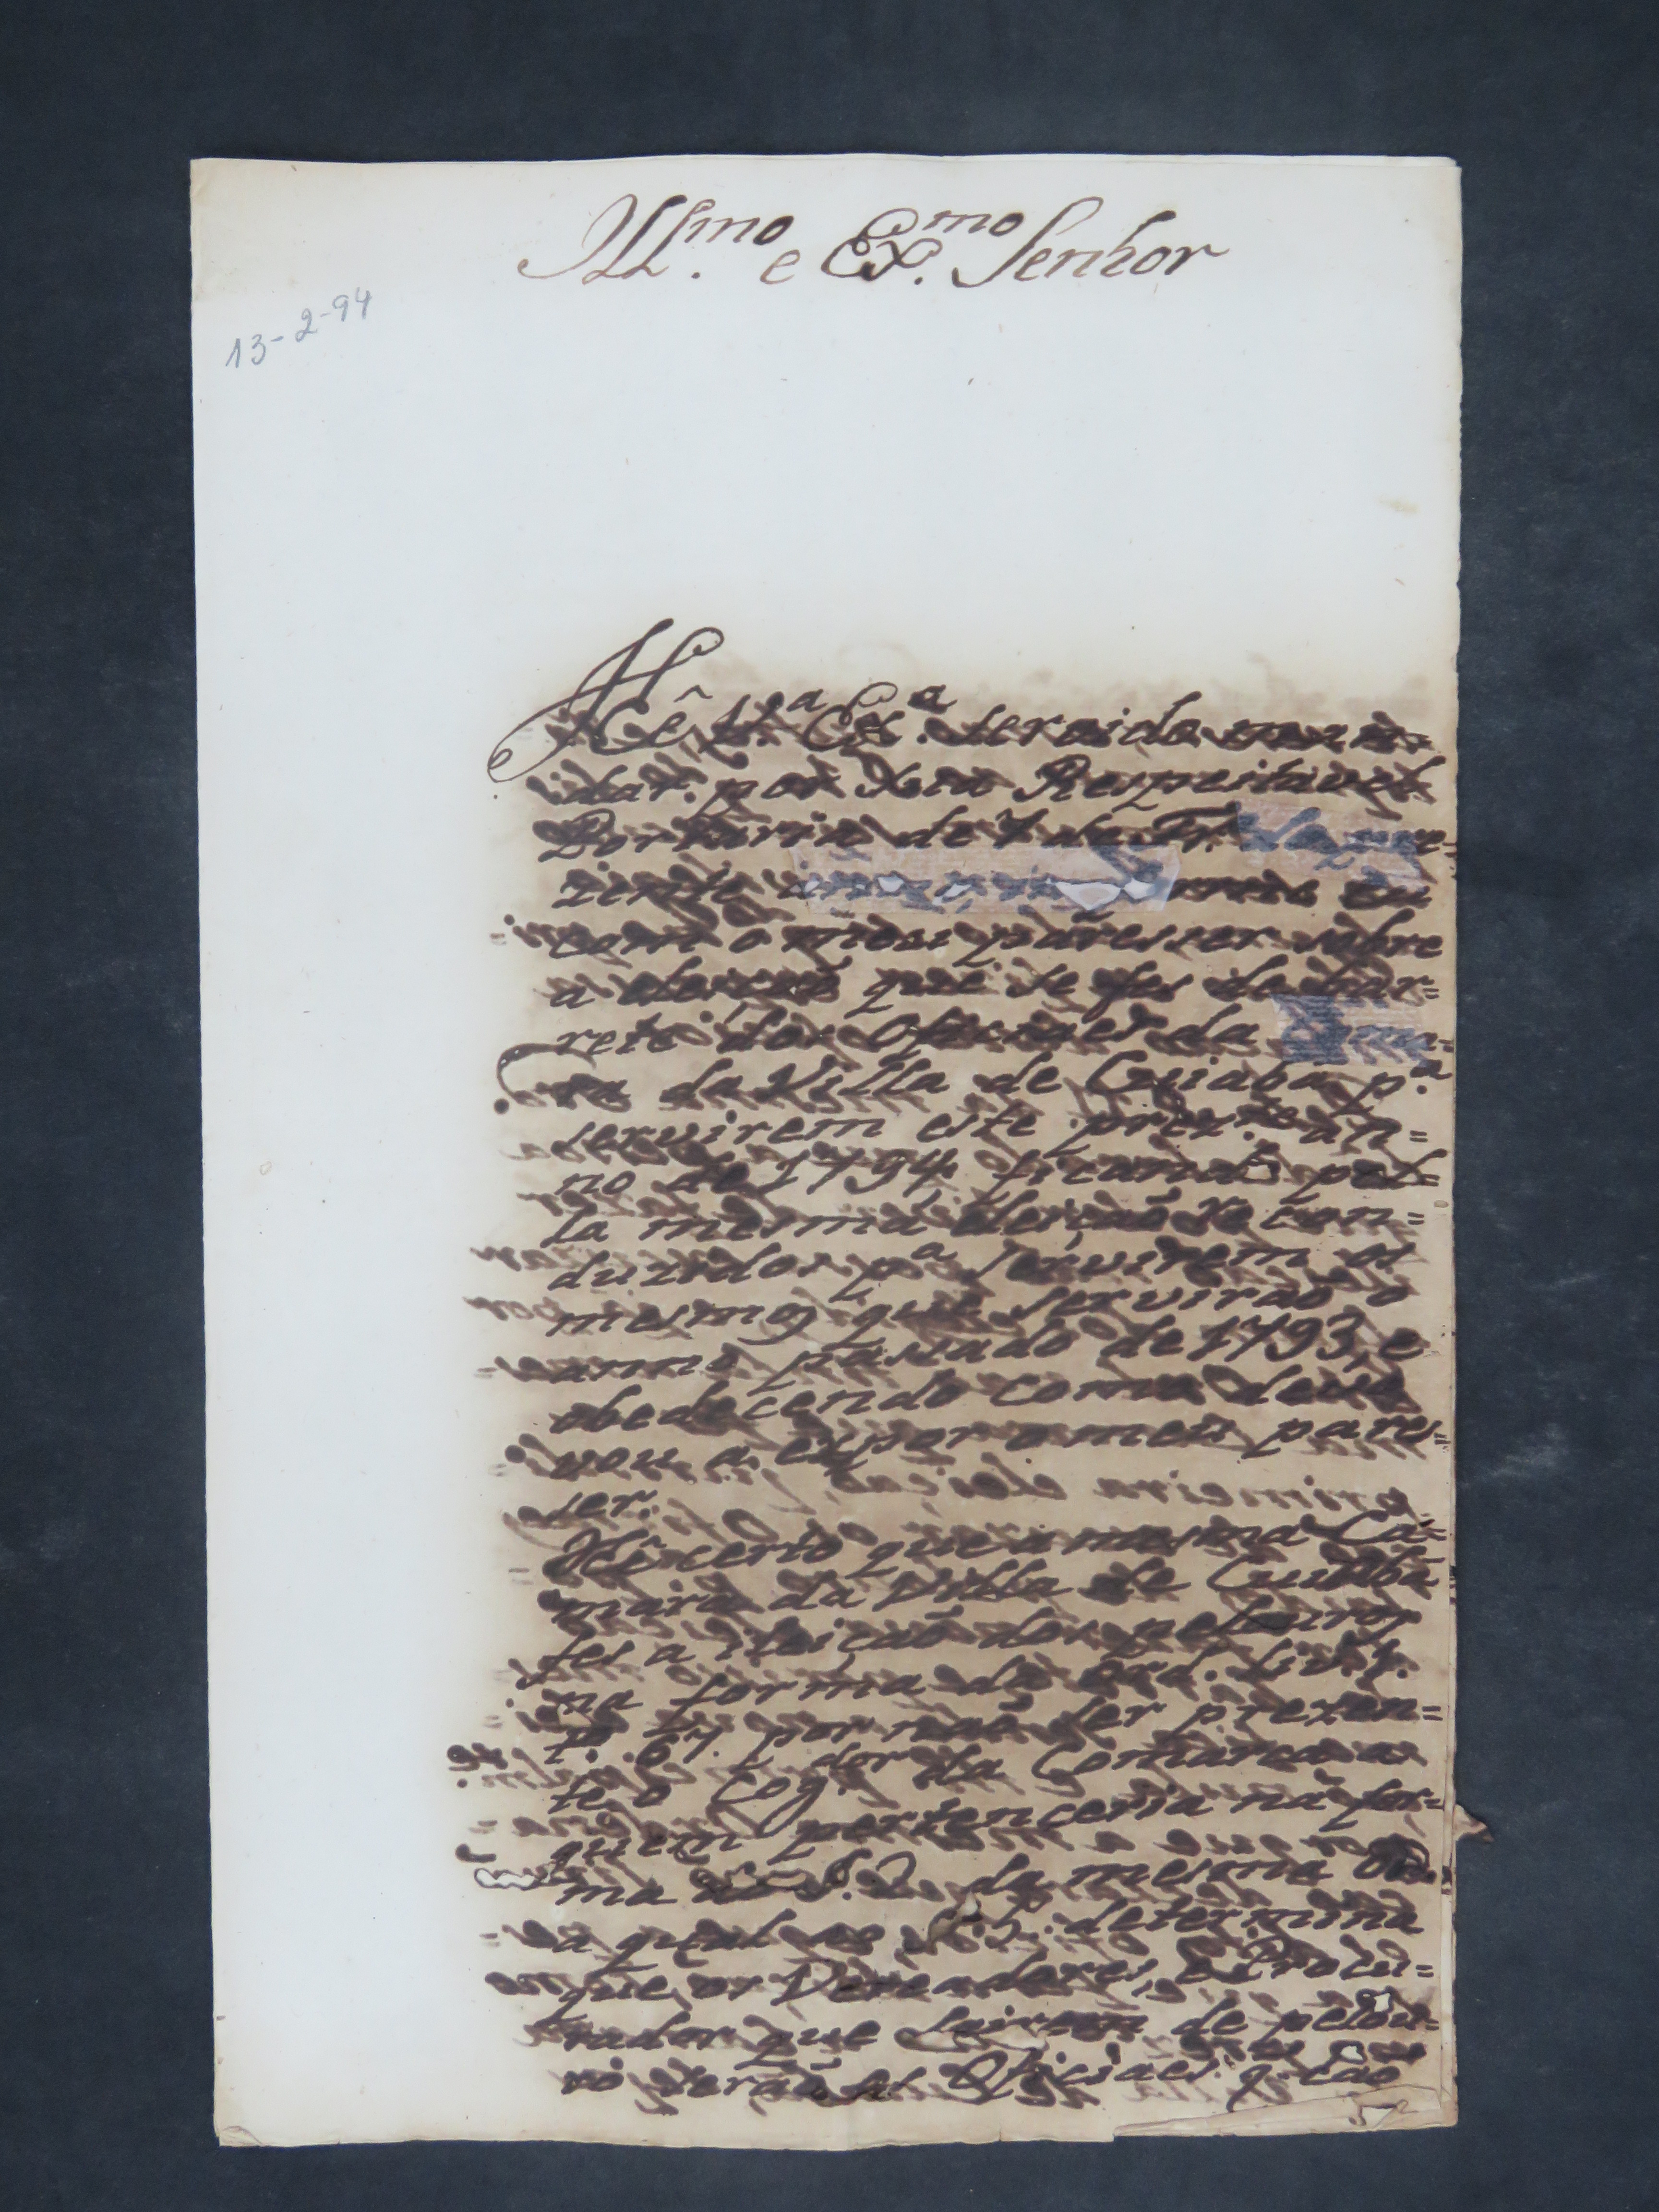 Ill.mo e Ex.mo Senhor
13-2-94
Hê V.a Ex.a servido man=
dar. por Sua Respeitavel
Portaria de 7 de Fr.
zente
com o meu paresser sobre
a eleição que se fes de bar=
rete dos Officiaes da Cama=
ra da Villa de Cuiaba p.a
servirem este prez.te an=
no de 1794 ficando pel=
la mesma eleição re con=
duzidos p.a servirem os
mesmos que servirão o
anno passado de 1793, e
obedecendo como devo
vou a expor o meu pares=
ser.
Hê certo que a mesma Ca=
mara da Villa de Cuiabá
fes a eleição dos pelouros
na forma da Ord. Liv. 1.
tt. 67. por não ser prezen=
te o Cog.dor da Comarca a
quem pertenceria na for=
ma do §. 2 da mesma Ord.
a qual no §. determina
que os Vereadores, e Procu=
rador que sairem de pelou=
ro serão os Officiaes q. são